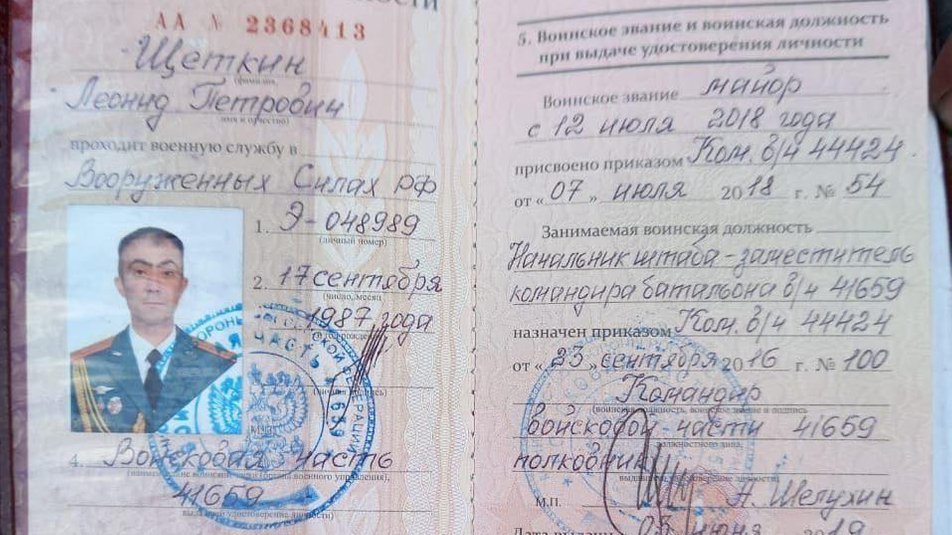 НОСТИ
АА № 2368413
Щеткин
(фамилия)
Леонид Петрович
(имя и отчество)
проходит военную службу в
Вооруженных Силах РФ
1. Э-048989
(личный номер)
2. 17 сентября
(число, месяц
1987 года
4. Войсковая часть
41659
5. Воинское звание и воинская должность
при выдаче удостоверения личности
Воинское звание майор
с 12 июля 2018 года
присвоено приказом Ком. в/ч 44424
от «07» июля 2018 г. № 54
Занимаемая воинская должность
Начальник штаба - заместитель
командира батальона в/ч 41659
назначен приказом Ком. в/ч 44424
от «23» сентября 2016 г. № 100
Командир
(воинская должность, воинское звание и подпись
войсковой части 41659
должностного лица,
полковник
выдавшего удостоверение личности)
М.П. А. Шелухин
Дата выдачи 05 июня 2019